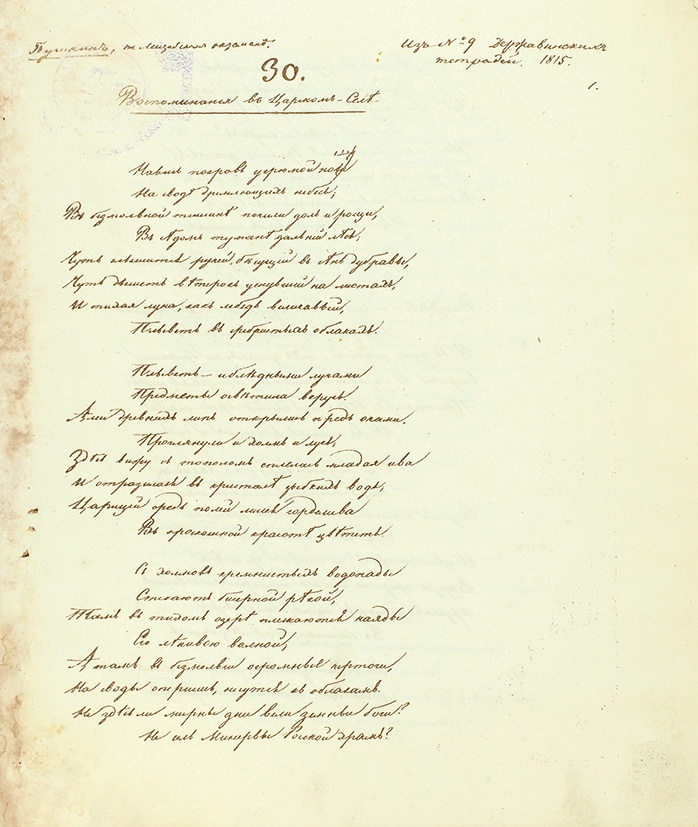 Пушкинъ, на Лицейскомъ экзаменѣ.
Изъ № 9 Державинскихъ
тетрадей. 1815.
30.
1.
Воспоминанія въ Царскомъ-Селѣ.
Нависъ покровъ угрюмой нощи
На водѣ дремлющихъ небесъ;
Въ безмолвной тишинѣ почили долъ и рощи,
Въ сѣдомъ туманѣ дальній лѣсъ;
Чуть слышится ручей, бѣгущій въ сѣнь дубравы,
Чуть дышетъ вѣтерокъ уснувшій на листахъ,
И тихая луна, какъ лебедь величавый,
Плыветъ въ сребристыхъ облакахъ.
Плыветъ — и блѣдными лучами
Предметы освѣтила вкругъ.
Аллеи древнихъ липъ открылись предъ очами,
Проглянули и холмъ и лугъ;
Здѣсь вижу съ тополомъ сплелась младая ива
И отразилась въ кристалѣ зыбкихъ водъ;
Царицей средь полей лилея горделива
Въ роскошной красотѣ цвѣтетъ.
Съ холмовъ кремнистыхъ водопады
Стекаютъ бисерной рѣкой,
Тамъ въ тихомъ озерѣ плескаются наяды
Его лѣнивою волной;
А тамъ въ безмолвіи огромные чертоги,
На своды опершись, несутся къ облакамъ.
Не здѣсь ли мирны дни вели земные боги?
Не се ль Минервы Росской храмъ?